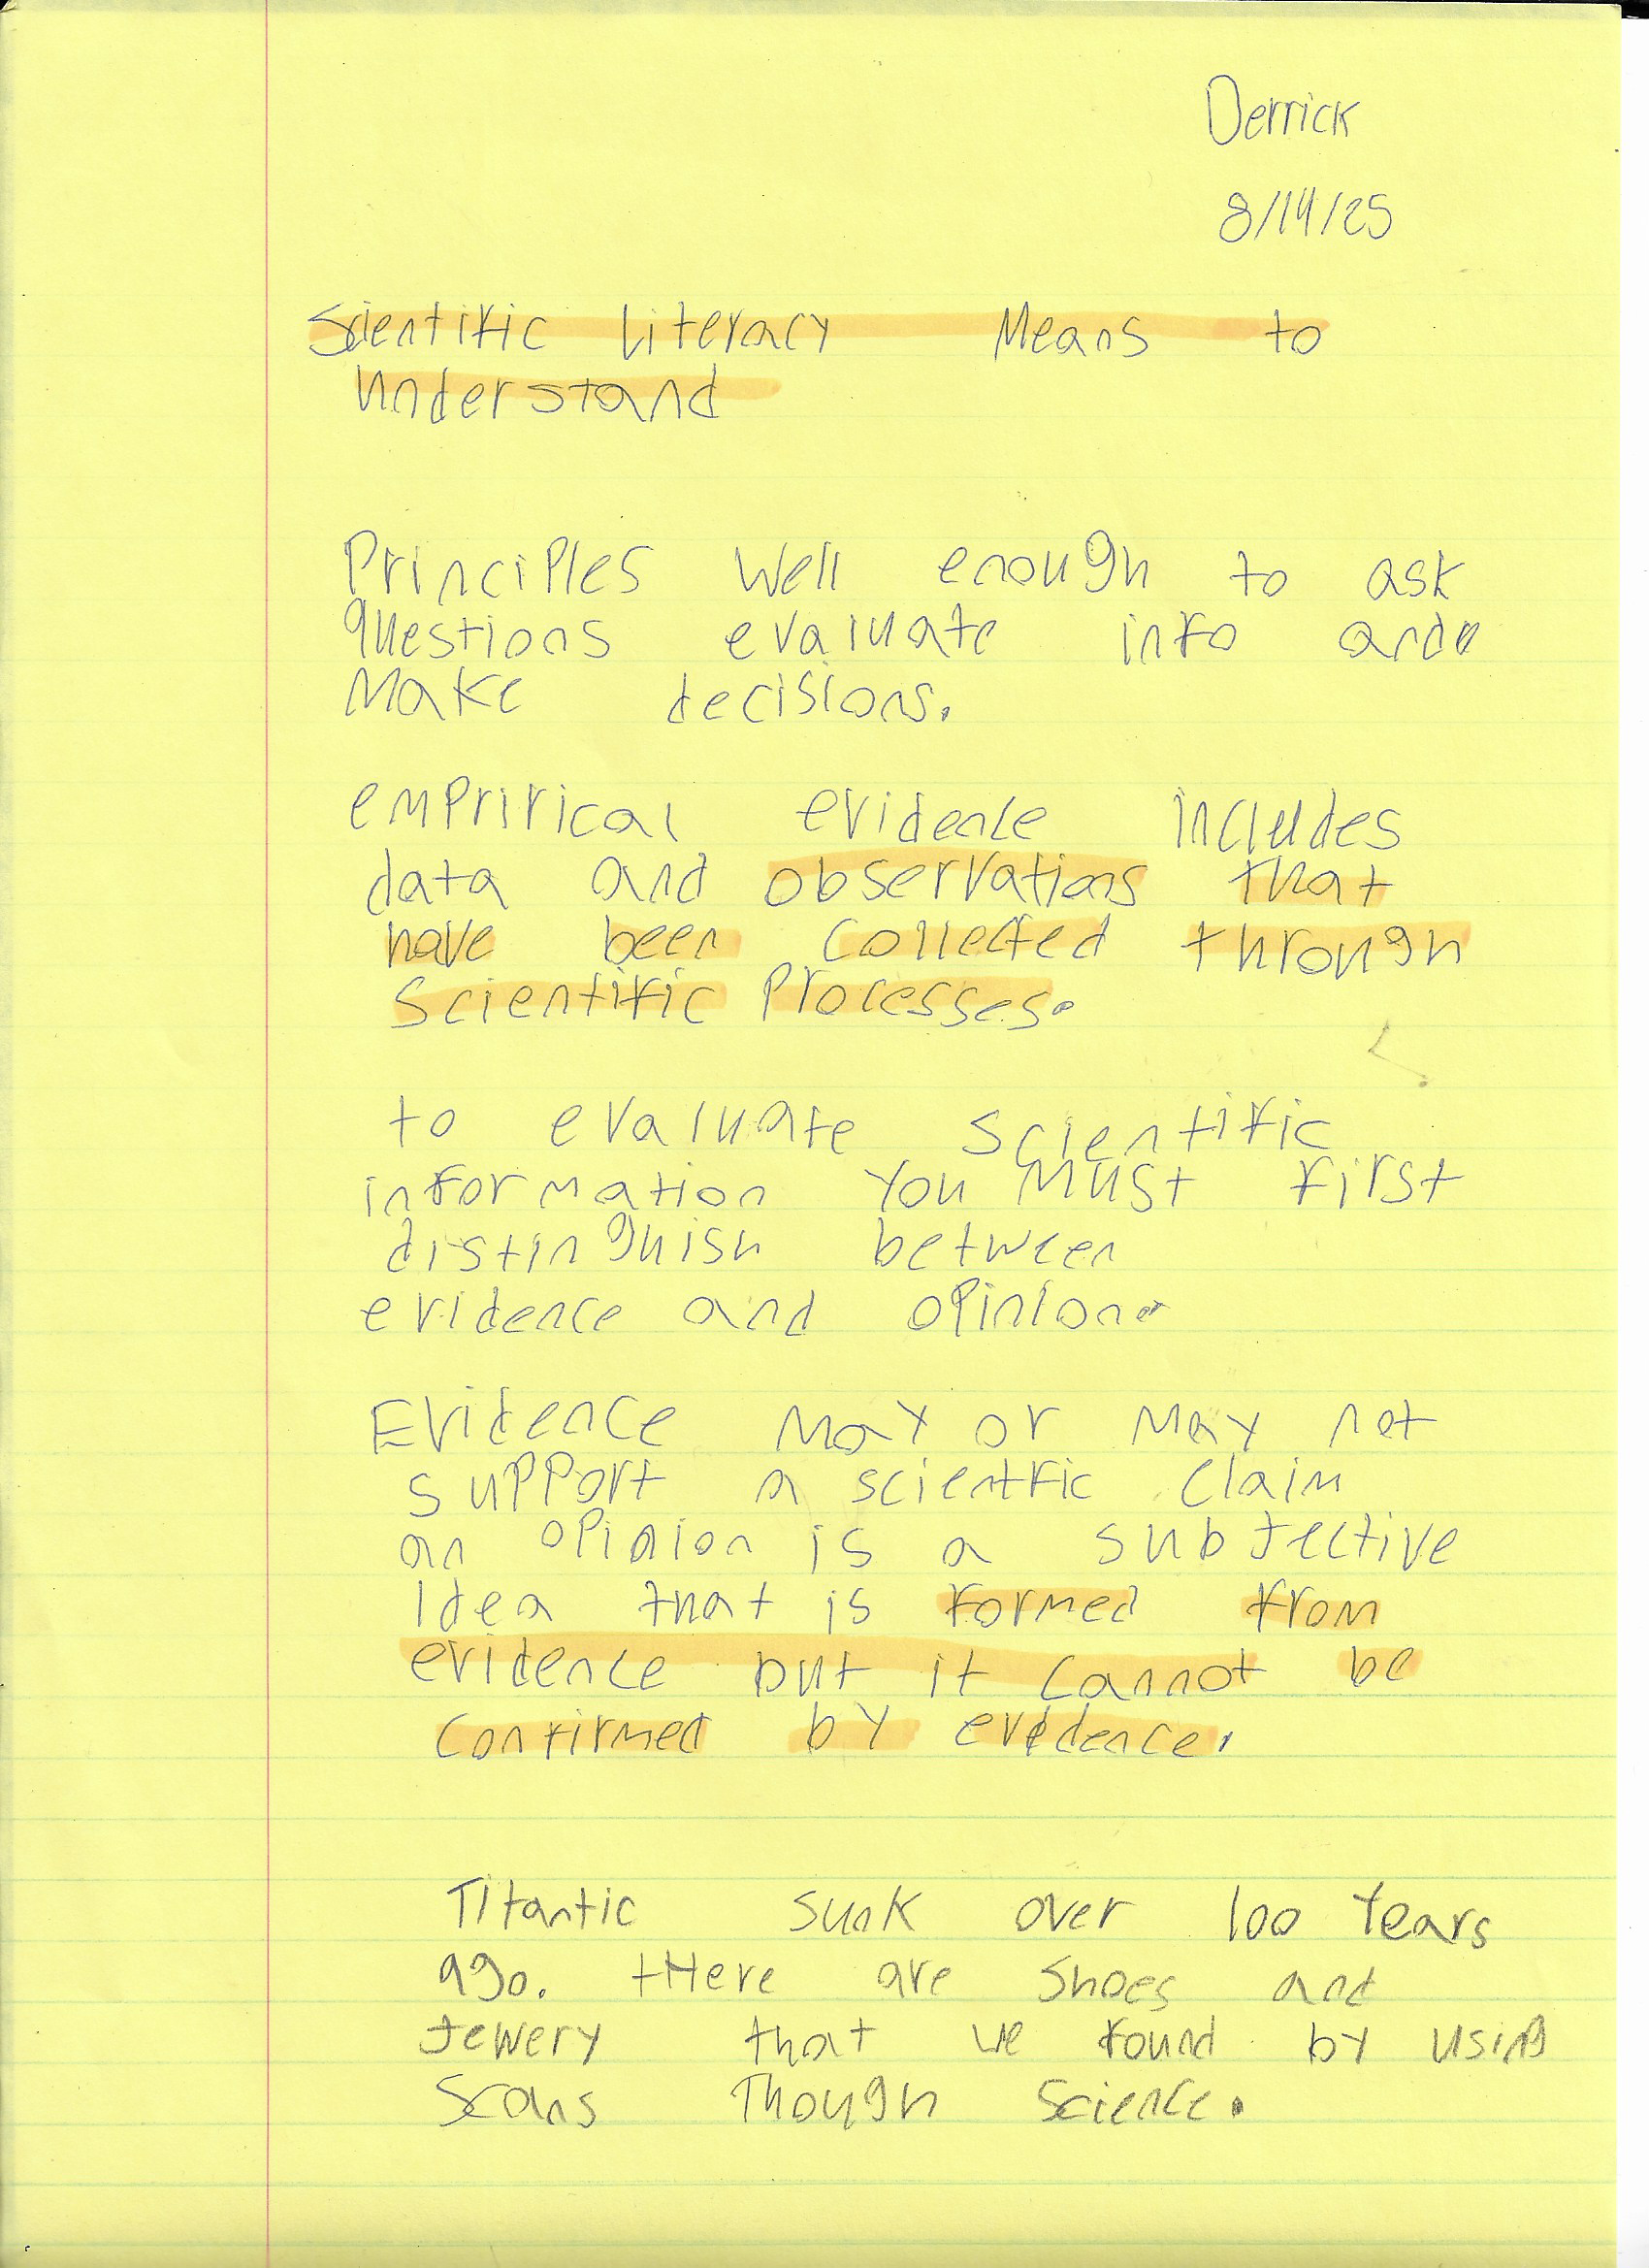 Derrick
8/14/25
Scientific Literacy Means to
Understand
Principles Well enough to ask
questions evaluate info and
Make decisions.
emprirical evidence includes
data and observations that
have been collected through
Scientific Processes.
to evaluate scientific
information You MUST first
distinguish between
evidence and opinion.
Evidence May or May not
support a scientfic claim
an opinion is a subjective
Idea that is formed from
evidence but it cannot be
confirmed by evidence.
TItantic sunk over 100 Years
ago. tHere are Shoes and
Jewery that we found by using
Scans Though Science.